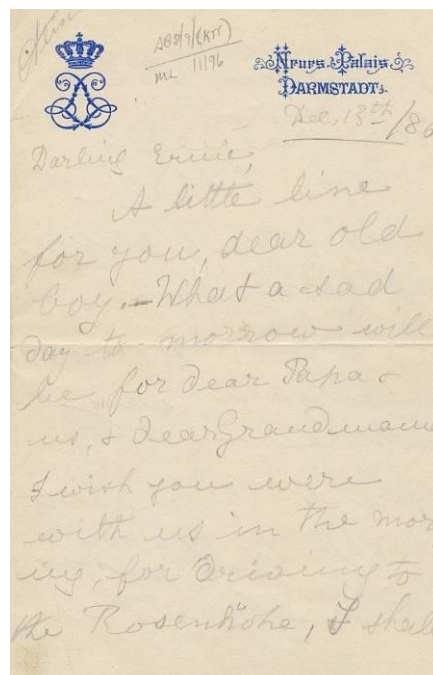 Alix
A88/9/(KTT)
ML 11/96
Neues Palais
Darmstadt.
Dec, 13th/86
Darling Ernie,
A little line
for you, dear old
boy. - What a sad
day to-morrow will
be for dear Papa &
us, & dear Grandmama
I wish you were
with us in the mor
ing, for driving to
the Rosenhöhe, I shall